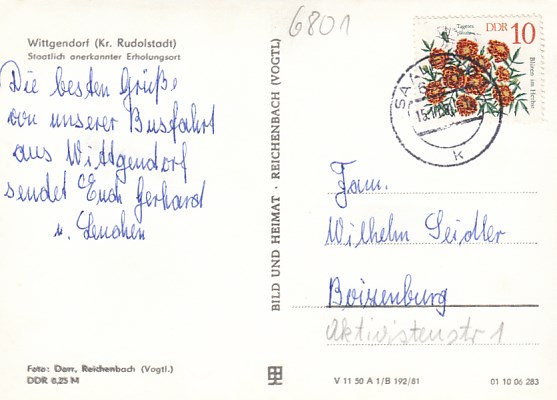 Wittgendorf (Kr. Rudolstadt)
Staatlich anerkannter Erholungsort
Die besten Grüße
von unserer Busfahrt
aus Wittgendorf
sendet Euch Gerhard
u. Lenchen
Foto: Darr, Reichenbach (Vogtl.)
DDR 0,25 M
BILD UND HEIMAT · REICHENBACH (VOGTL)
6801
DDR 10
Tagetes
Blüten im Herbst
SAA
k
Fam.
Wilhelm Seidler
Boizenburg
Aktivistenstr 1
V 11 50 A 1/B 192/81
01 10 06 283